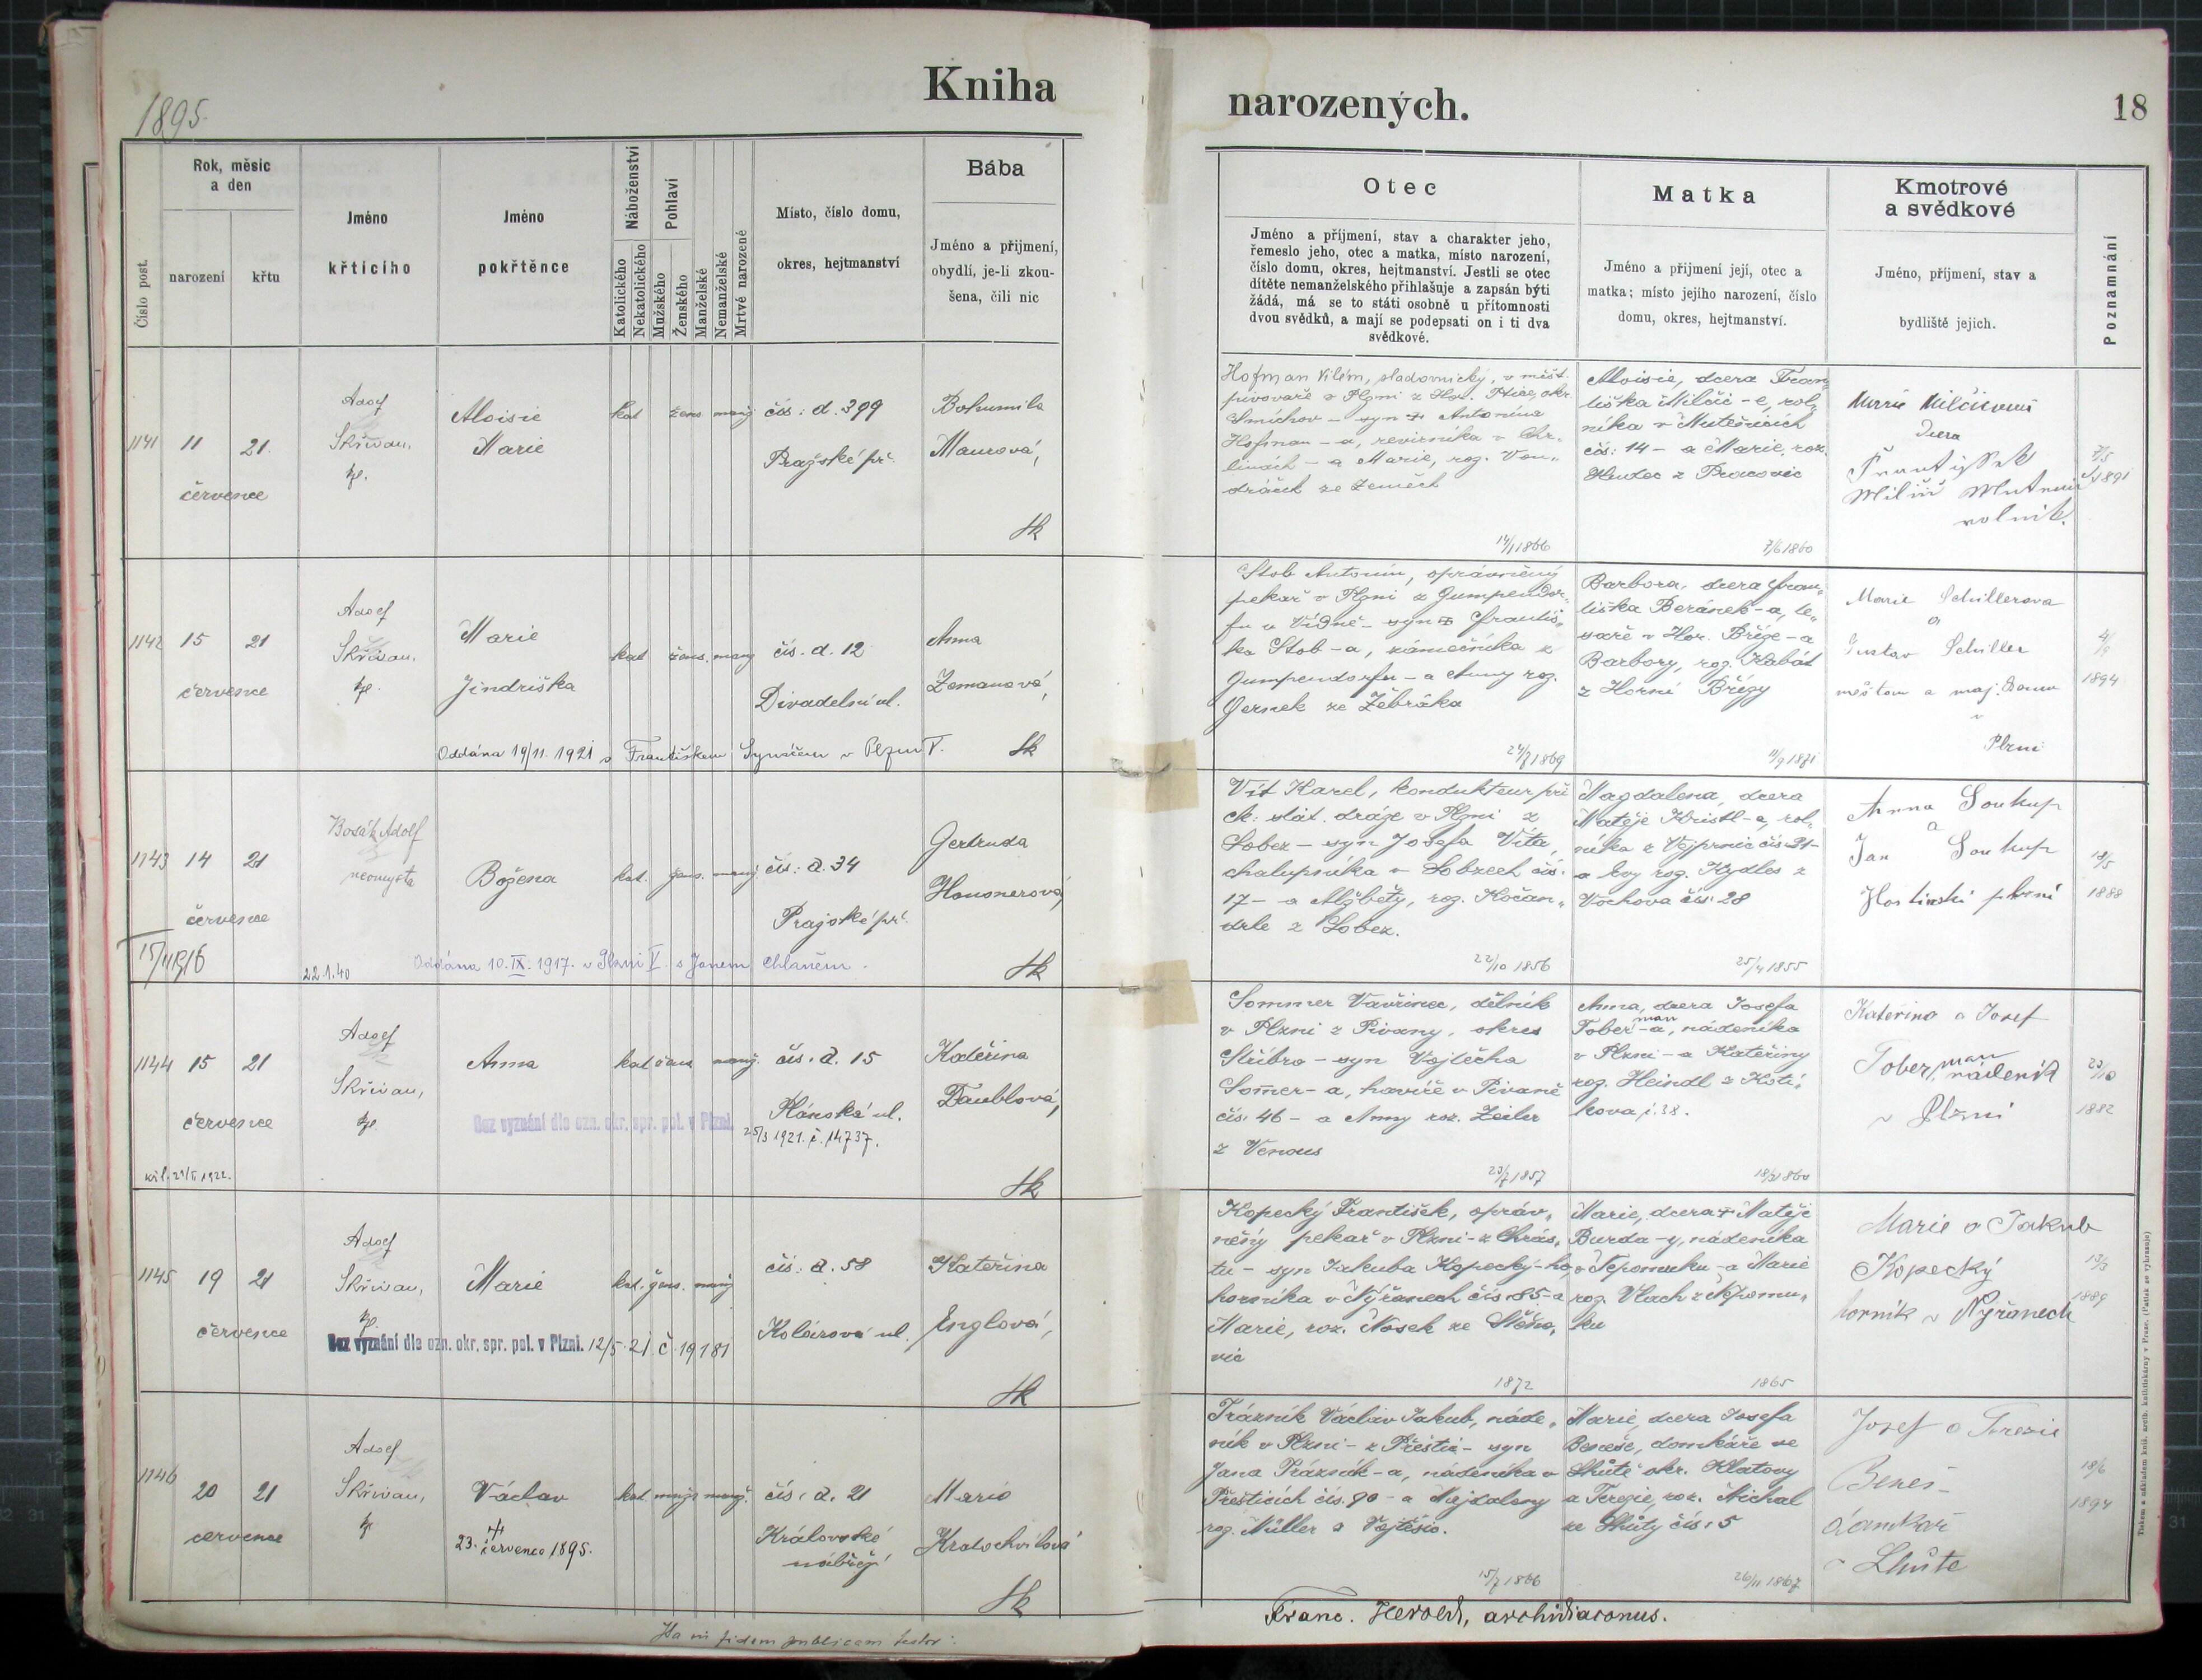 1895.
Kniha
narozených.
18
Číslo post.
Rok, měsíc
a den
narození
křtu
Jméno
křtícího
Jméno
pokřtěnce
Náboženství
Katolického
Nekatolického
Pohlaví
Mužského
Ženského
Manželské
Nemanželské
Mrtvé narozené
Místo, číslo domu,
okres, hejtmanství
Bába
Jméno a přijmení,
obydlí, je-li zkou-
šena, čili nic
Otec
Jméno a příjmení, stav a charakter jeho,
řemeslo jeho, otec a matka, místo narození,
číslo domu, okres, hejtmanství. Jestli se otec
dítěte nemanželského přihlašuje a zapsán býti
žádá, má se to státi osobně u přítomnosti
dvou svědků, a mají se podepsati on i ti dva
svědkové.
Matka
Jméno a přijmení její, otec a
matka; místo jejího narození, číslo
domu, okres, hejtmanství.
Kmotrové
a svědkové
Jméno, příjmení, stav a
bydliště jejich.
Poznamnání
1141
11
21.
července
Adolf
Skřivan,
kpl.
Aloisie
Marie
kat
žens
manž
čís: d. 399
Pražské př.
Bohumila
Maurová,
Hofman Vilém, sladovnický v měšt.
pivovaře v Plzni z Hor. Ptice, okr.
Smíchov – syn † Antonína
Hofman-a, revírníka v Chr-
linách – a Marie, roz. Von-
dráček ze Zemněch
14/1 1866
Aloisie, dcera Fran-
tiška Milčič-e, rol-
níka v Mutěnicích
čís: 14 – a Marie, roz.
Hudec z Pracovic
7/6 1860
Marie Milčicová
dcera
František
rolník.
7/5
1891
1142
15
21
července
Adolf
Skřivan,
kpl.
Marie
Jindriška
kat
žens.
manž
čís. d. 12
Divadelní ul.
Anna
Zemanová,
Oddána 19/11. 1921 s Františkem Synáčem v Plzni V.
Stob Antonín, oprávněný
pekař v Plzni z Gumpendor-
fu u Vídně – syn † Františ-
ka Stob-a, zámečníka z
Gumpendorfu – a Anny roz.
Gernek ze Žebráka
24/7 1869
Barbora, dcera Fran-
tiška Beránek-a, te-
saře v Hor. Bříze – a
Barbory, roz. Kabát
z Horní Břízy
11/9 1871
Marie Schillerova
a
Gustav Schiller
měšťan a maj. domu
v
Plzni
4/9
1894
1143
14
21
července
15/III 1916
Bosák Adolf
neomysta
Božena
kat.
žens.
manž.
čís: d. 34
Pražské př.
Gertruda
Hausnerová,
22.1.40
Oddána 10.IX. 1917. v Plzni V. s Janem Chlaněm.
Vít Karel, kondukteur při
ck: stát. dráze v Plzni z
Lobez – syn Josefa Víta,
chalupníka v Lobzech čís.
17 – a Alžběty, roz. Kočan-
drle z Lobez.
22/10 1856
Magdalena, dcera
Matěje Kristl-a, rol-
níka z Vejprnic čís. 21 –
a Evy roz. Kydles z
Vochova čís. 28
25/4 1855
Anna Soukup
a
Jan Soukup
18/5
1888
1144
15
21
července
Adolf
Skřivan,
kpl.
Anna
kat
žens
manž.
čís. d. 15
Plánská ul.
Kateřina
Daublová,
Bez vyznání dle ozn. okr. spr. pol. v Plzni.
25/3 1921. č. 14737.
Sommer Vavřinec, dělník
v Plzni z Pivany, okres
Stříbro – syn Vojtěcha
Somer-a, havíře v Pivaně
čís. 46 – a Anny roz. Zeiler
z Venous
23/7 1857
Anna, dcera Josefa
Toberman-a, nádeníka
v Plzni – a Kateřiny
roz. Heindl z Kotí-
kova č. 38.
Kateřina a Josef
Toberman,
nádeník
v Plzni
23/10
1882
1145
19
21
července
Adolf
Skřivan,
kpl.
Marie
kat.
žens.
manž
čís: d. 58
Kolárova ul.
Kateřina
Englová,
Bez vyznání dle ozn. okr. spr. pol. v Plzni. 12/5 21 č. 19181
Kopecký František, opráv-
něný pekař v Plzni – z Chrás-
tu – syn Jakuba Kopecký-ho,
horníka v Nýřanech čís. 85 – a
Marie, roz. Nosek ze Stěno-
vic
1872
Marie, dcera † Matěje
Burda-y, nádeníka
v Nepomuku – a Marie
roz. Vlach z Nepomu-
ku
1865
Marie a Jakub
Kopecký
horník v Nýřanech
13/3
1889
1146
20
21
července
Adolf
Skřivan,
kpl
Václav
†
23. července 1895.
kat
mužs
manž.
čís. d. 21
Královské
nábřeží
Marie
Kratochvílová
Trázník Václav Jakub, náde-
ník v Plzni – z Přeštic – syn
Jana Trázník-a, nádeníka v
Přešticích čís. 90 – a Majdaleny
roz. Müller z Vojtěšic.
15/7 1866
Marie, dcera Josefa
Beneše, domkáře ve
Lhůtě okr. Klatovy
a Terezie, roz. Michal
ze Lhůty čís. 5
26/11 1867
Josef a Terezie
Beneš
domkář
v Lhůte
18/6
1894
Franc. Herold, archidiaconus.